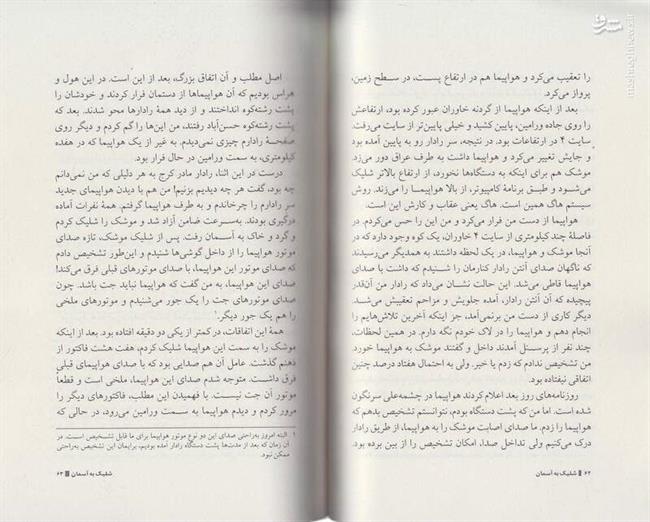 را تعقیب می‌کرد و هواپیما هم در ارتفاع پست، در سطح زمین،
پرواز می‌کرد.
بعد از اینکه هواپیما از گردنه خاوران عبور کرده بود، ارتفاعش
را روی جاده ورامین، پایین کشید و خیلی پایین‌تر از سایت می‌رفت.
سایت ۴ در ارتفاعات بود. در نتیجه، سر رادار رو به پایین آمده بود
و جایش تغییر می‌کرد و هواپیما داشت به طرف عراق دور می‌زد.
موشک هم برای اینکه به دستگاه‌ها نخورد، از ارتفاع بالاتر شلیک
می‌شود و طبق برنامهٔ کامپیوتر، از بالا هواپیما را می‌زند. روش
سیستم هاگ همین است. هاگ یعنی عقاب و کارش این است.
هواپیما از دست من فرار می‌کرد و من این را حس می‌کردم. در
فاصلهٔ چند کیلومتری از سایت ۴ خاوران، یک کوه وجود دارد که در
آنجا موشک و هواپیما، در یک لحظه داشتند به همدیگر می‌رسیدند
که ناگهان صدای آنتن رادار کنارمان را شنیدم که داشت با صدای
هواپیما قاطی می‌شد. این حالت نشان می‌داد که رادار من آن‌قدر
پیچیده که آن آنتن رادار، آمده جلویش و مزاحم تعقیبش شد.
دیگر کاری از دست من برنمی‌آمد، جز اینکه آخرین تلاش‌هایم را
انجام دهم و هواپیما را در لاک خودم نگه دارم. در همین لحظات،
چند نفر از پرسنل آمدند داخل و گفتند موشک به هواپیما خورد.
من تشخیص ندادم که زدم یا خیر. ولی به احتمال هفتاد درصد چنین
اتفاقی نیفتاده بود.
روزنامه‌های روز بعد اعلام کردند هواپیما در چشمه‌علی سرنگون
شده است. اما من که پشت دستگاه بودم، نتوانستم تشخیص بدهم که
هواپیما را زدم. ما صدای اصابت موشک به هواپیما را، از طریق رادار
درک می‌کنیم ولی تداخل صدا، امکان تشخیص را از بین برده بود.
۶۲ شلیک به آسمان
اصل مطلب و آن اتفاق بزرگ، بعد از این است. در این هول و
هراس بودیم که آن هواپیماها از دستمان فرار کردند و خودشان را
پشت رشته‌کوه انداختند و از دید همهٔ رادارها محو شدند. بعد که
پشت رشته‌کوه حسن‌آباد رفتند، من این‌ها را گم کردم و دیگر روی
صفحهٔ رادارم چیزی نمی‌دیدم. به غیر از یک هواپیما که در هفده
کیلومتری، به سمت ورامین در حال فرار بود.
درست در این اثنا، رادار مادر کرج به هر دلیلی که من نمی‌دانم
چه بود، گفت هر چه دیدیم بزنیم! من هم با دیدن هواپیمای جدید
سر رادارم را چرخاندم و به طرف هواپیما گرفتم. همهٔ نفرات آماده
درگیری بودند. به‌سرعت ضامن آزاد شد و موشک را شلیک کردم
و گرد و خاک به آسمان رفت. پس از شلیک موشک، تازه صدای
موتور هواپیما را از داخل گوشی‌ها شنیدم و این‌طور تشخیص دادم
که صدای موتور این هواپیما، با صدای موتورهای قبلی فرق می‌کند!
صدای این هواپیما، به من گفت که هواپیما نباید جت باشد. چون
صدای موتورهای جت را یک جور می‌شنیدم و موتورهای ملخی
را هم یک جور دیگر.۱
همهٔ این اتفاقات، در کمتر از یکی دو دقیقه افتاده بود. بعد از اینکه
موشک را به سمت این هواپیما شلیک کردم، هفت هشت فاکتور از
ذهنم گذشت. عامل آن هم صدایی بود که با صدای هواپیمای قبلی
فرق داشت. متوجه شدم صدای این هواپیما، ملخی است و قطعاً
موتور آن جت نیست. با فهمیدن این مطلب، فاکتورهای دیگر را
مرور کردم و دیدم هواپیما به سمت ورامین می‌رود، در حالی که
۱ البته امروز به‌راحتی صدای این دو نوع موتور هواپیما برای ما قابل تشخیص است. در
آن زمان که بعد از مدت‌ها پشت دستگاه رادار آمده بودیم، برایمان این تشخیص به‌راحتی
ممکن نبود.
شلیک به آسمان ۶۳